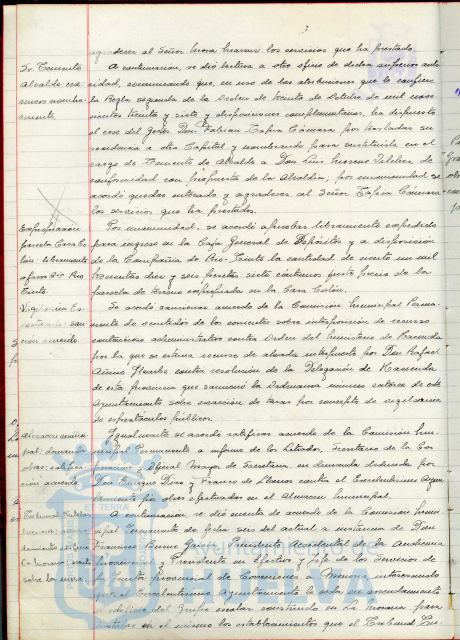 agradecer al Señor Mora Huarn los servicios que ha prestado.
Sr. Teniente
Alcalde ce-
se y nombra-
miento.
A continuación, se dió lectura a otro oficio de dicha superior auto-
ridad, comunicando que, en uso de las atribuciones que le confiere
la Regla segunda de la Orden de treinta de Octubre de mil nove-
cientos treinta y siete y disposiciones complementarias, ha dispuesto
el cese del Gestor Don Fabian Tapia Cámara por trasladar su
residencia a otra Capital y nombrando para sustituirle en el
cargo de Teniente de Alcalde a Don Luis Moreno de
conformidad con propuesta de la Alcaldía; por unanimidad se
acordó quedar enterado y agradecer al Señor Tapia Cámara
los servicios que ha prestado.
Expropiación
parcela Casa Co-
lón: libramiento
a favor Cía Pro
Tento.
Por unanimidad, se acordó aprobar libramiento expedido
para ingreso en la Caja General de Depósitos y a disposición
de la Compañía de la cantidad de ciento un mil
trescientos diez y seis pesetas siete céntimos justo precio de la
parcela de terreno expropiada en la Casa Colón.
Vigilancia Es-
pectáculos: san-
ción acuerdo.
Se acordó sancionar acuerdo de la Comisión Municipal Perma-
nente de resultados de los comentes sobre interposición de recurso
contencioso administrativo contra Orden del Ministerio de Hacienda
por la que se estima recurso de alzada interpuesto por Don Rafael
contra resolución de la Delegación de Hacienda
de esta provincia que sancionó la Ordenanza número catorce de este
Ayuntamiento sobre exacción de tasas por concepto de vigilancia
de espectáculos públicos.
Almacen munici-
pal, demanda
obras: ratifica-
ción acuerdo.
Igualmente se acordó ratificar acuerdo de la Comisión Mu-
nicipal Permanente e informe de los Letrados, Secretario de la Cor-
poración y Oficial Mayor de Secretaría, en demanda deducida por
Don Enrique Díaz y Franco de Llanos contra el Excelentísimo Ayun-
tamiento por obras efectuadas en el Almacen municipal.
Tribunal Tutelar
sobre la misma.
A continuación, se dió cuenta de acuerdo de la Comisión Muni-
cipal Permanente de fecha seis del actual a instancia de Don
Francisco Bueno Presidente Accidental de la Audiencia
Provincial y Presidente en Efectivo y Jefe de los Servicios de
la Junta provincial de Correciones de Menores interesando
que el Excelentísimo Ayuntamiento le ceda en arrendamiento
el edificio del Grupo escolar construido en La para
instalar en el mismo los establecimientos que el Tribunal Tu-
TERRAE
Ayuntamiento de